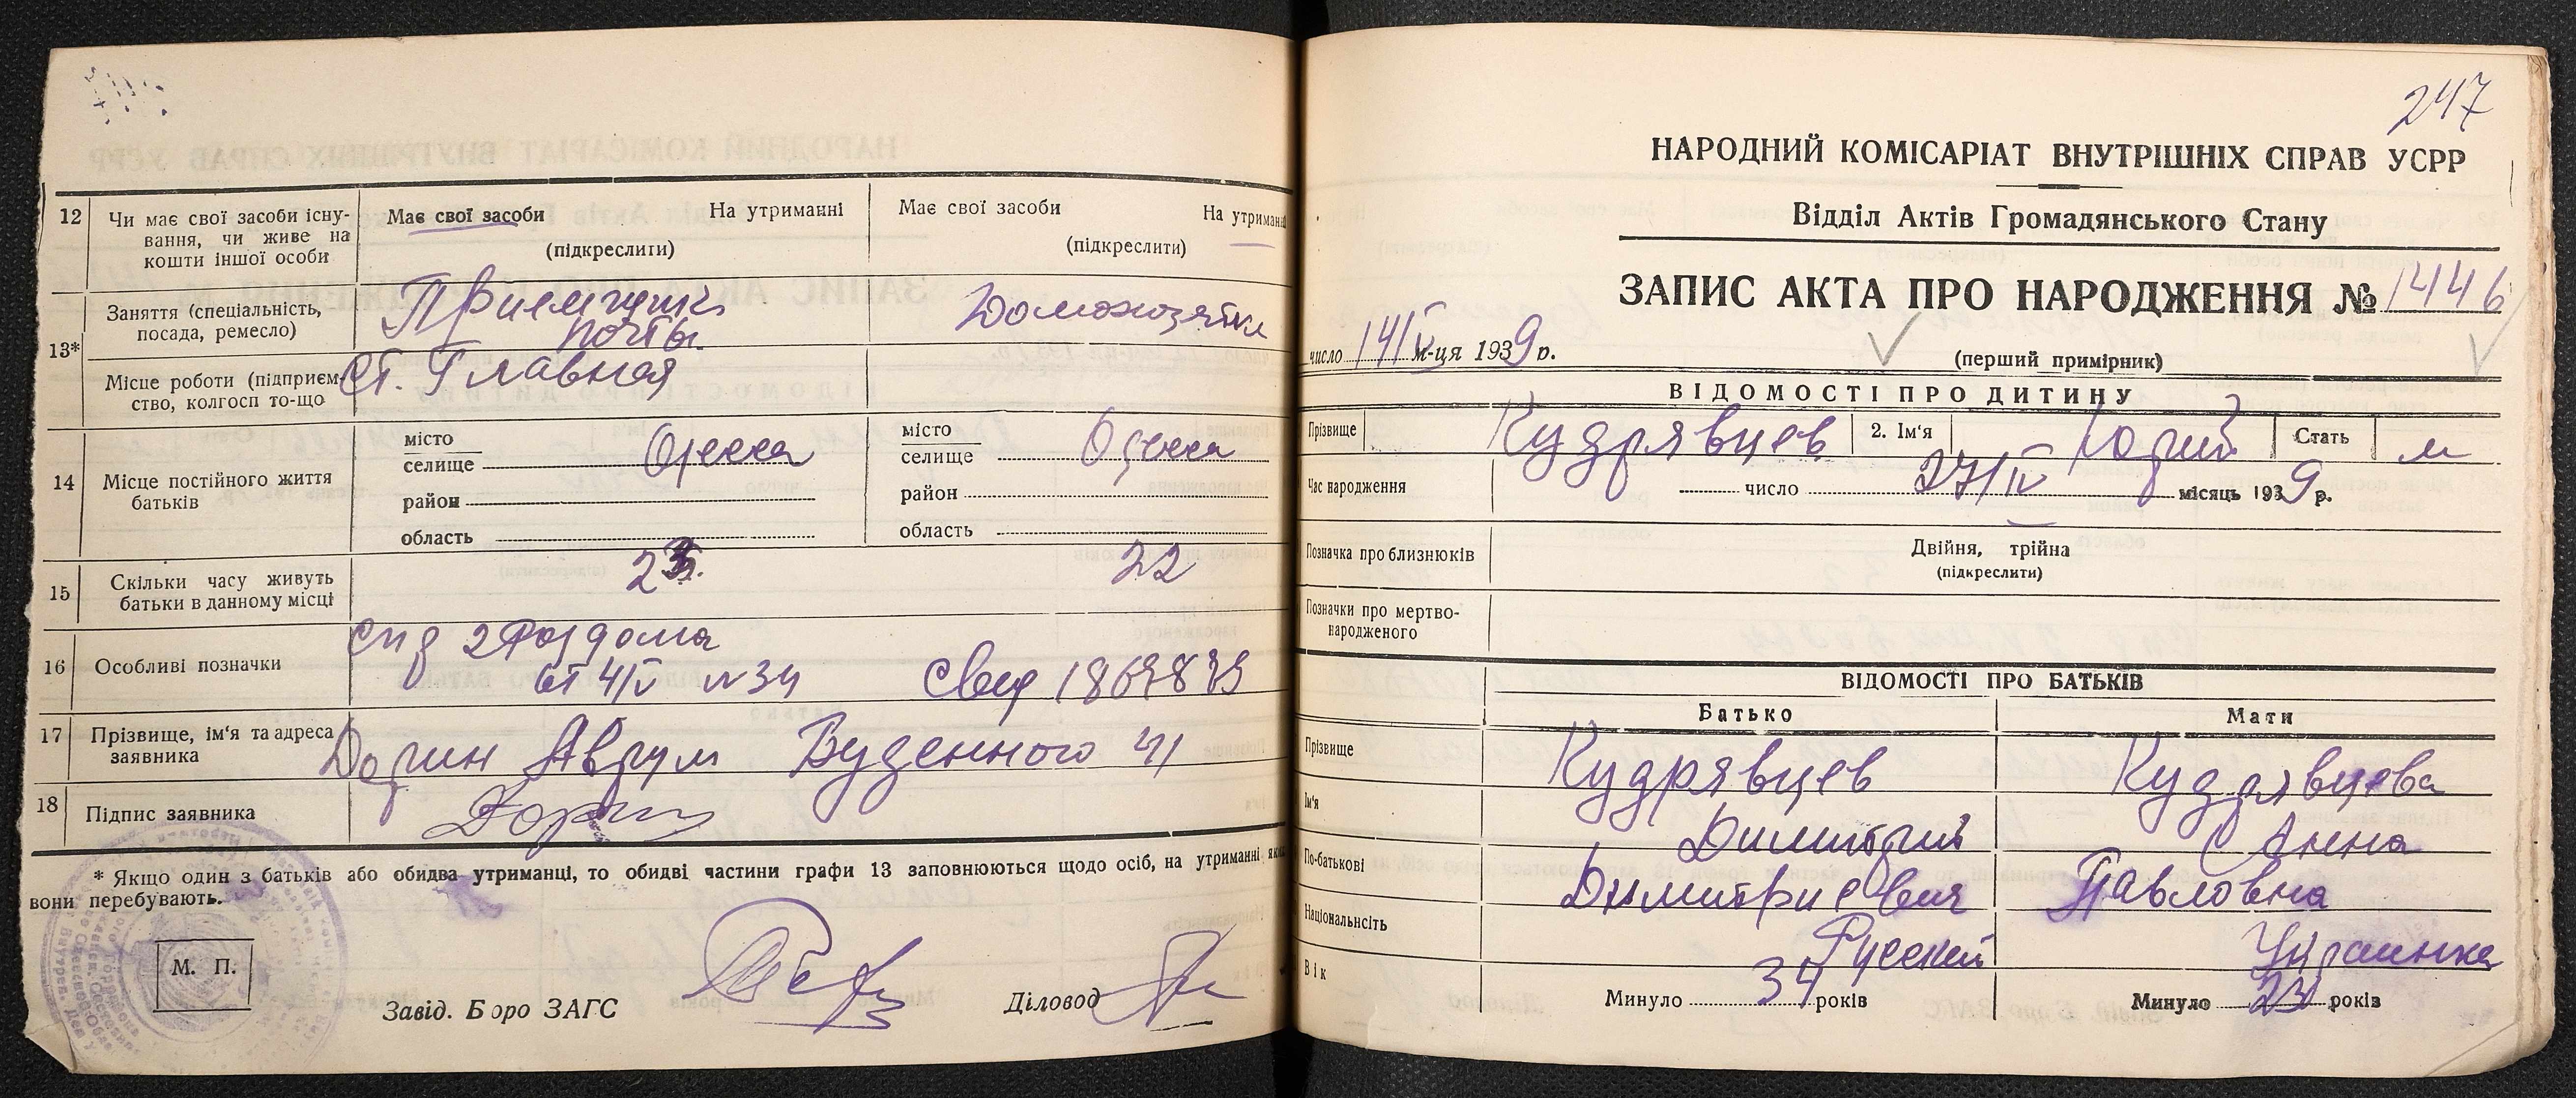 12
Чи має свої засоби існу-
вання, чи живе на
кошти іншої особи
Має свої засоби На утриманні
(підкреслити)
Має свої засоби На утриманні
(підкреслити)
13*
Заняття (спеціальність,
посада, ремесло)
Приемщик
почты
Домохозяйка
Місце роботи (підприєм-
ство, колгосп то-що
Ст. Главная
14
Місце постійного життя
батьків
місто
селище Одесса
район
область
місто
селище Одесса
район
область
15
Скільки часу живуть
батьки в данному місці
22
16
Особливі позначки
2 роддома
от 4/V №34
17
Прізвище, ім'я та адреса
заявника
Дорин Аврум Буденного 41
18
Підпис заявника
Дорин
* Якщо один з батьків або обидва утриманці, то обидві частини графи 13 заповнюються щодо осіб, на утриманні яких
вони перебувають.
М. П.
Завід. Бюро ЗАГС
Діловод
247
НАРОДНИЙ КОМІСАРІАТ ВНУТРІШНІХ СПРАВ УСРР
Відділ Актів Громадянського Стану
ЗАПИС АКТА ПРО НАРОДЖЕННЯ № 1446
число 14/V м-ця 1939 р.
(перший примірник)
ВІДОМОСТІ ПРО ДИТИНУ
Прізвище Кудрявцев 2. Ім'я Юрий Стать м
Час народження число 27/IV місяць 1939 р.
Позначка про близнюків
Двійня, трійна
(підкреслити)
Позначки про мертво-
народженого
ВІДОМОСТІ ПРО БАТЬКІВ
Батько Мати
Прізвище Кудрявцев Кудрявцева
Ім'я Димитрий Анна
По-батькові Димитриевич Павловна
Національність Русский Украинка
Вік Минуло 34 років Минуло 23 років